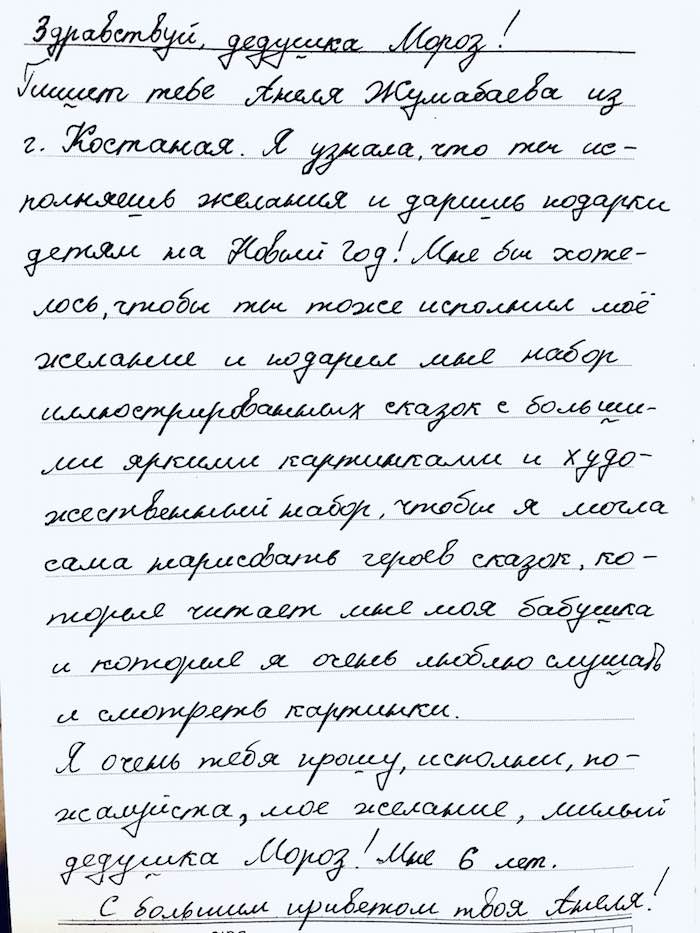 Здравствуй, дедушка Мороз!
Пишет тебе Анеля Жумабаева из
г. Костаная. Я узнала, что ты ис-
полняешь желания и даришь подарки
детям на Новый Год! Мне бы хоте-
лось, чтобы ты тоже исполнил моё
желание и подарил мне набор
иллюстрированных сказок с больши-
ми яркими картинками и худо-
жественный набор, чтобы я могла
сама нарисовать героев сказок, ко-
торые читает мне моя бабушка
и которые я очень люблю слушать
и смотреть картинки.
Я очень тебя прошу, исполни, по-
жалуйста, мое желание, милый
дедушка Мороз! Мне 6 лет.
С большим приветом твоя Анеля!